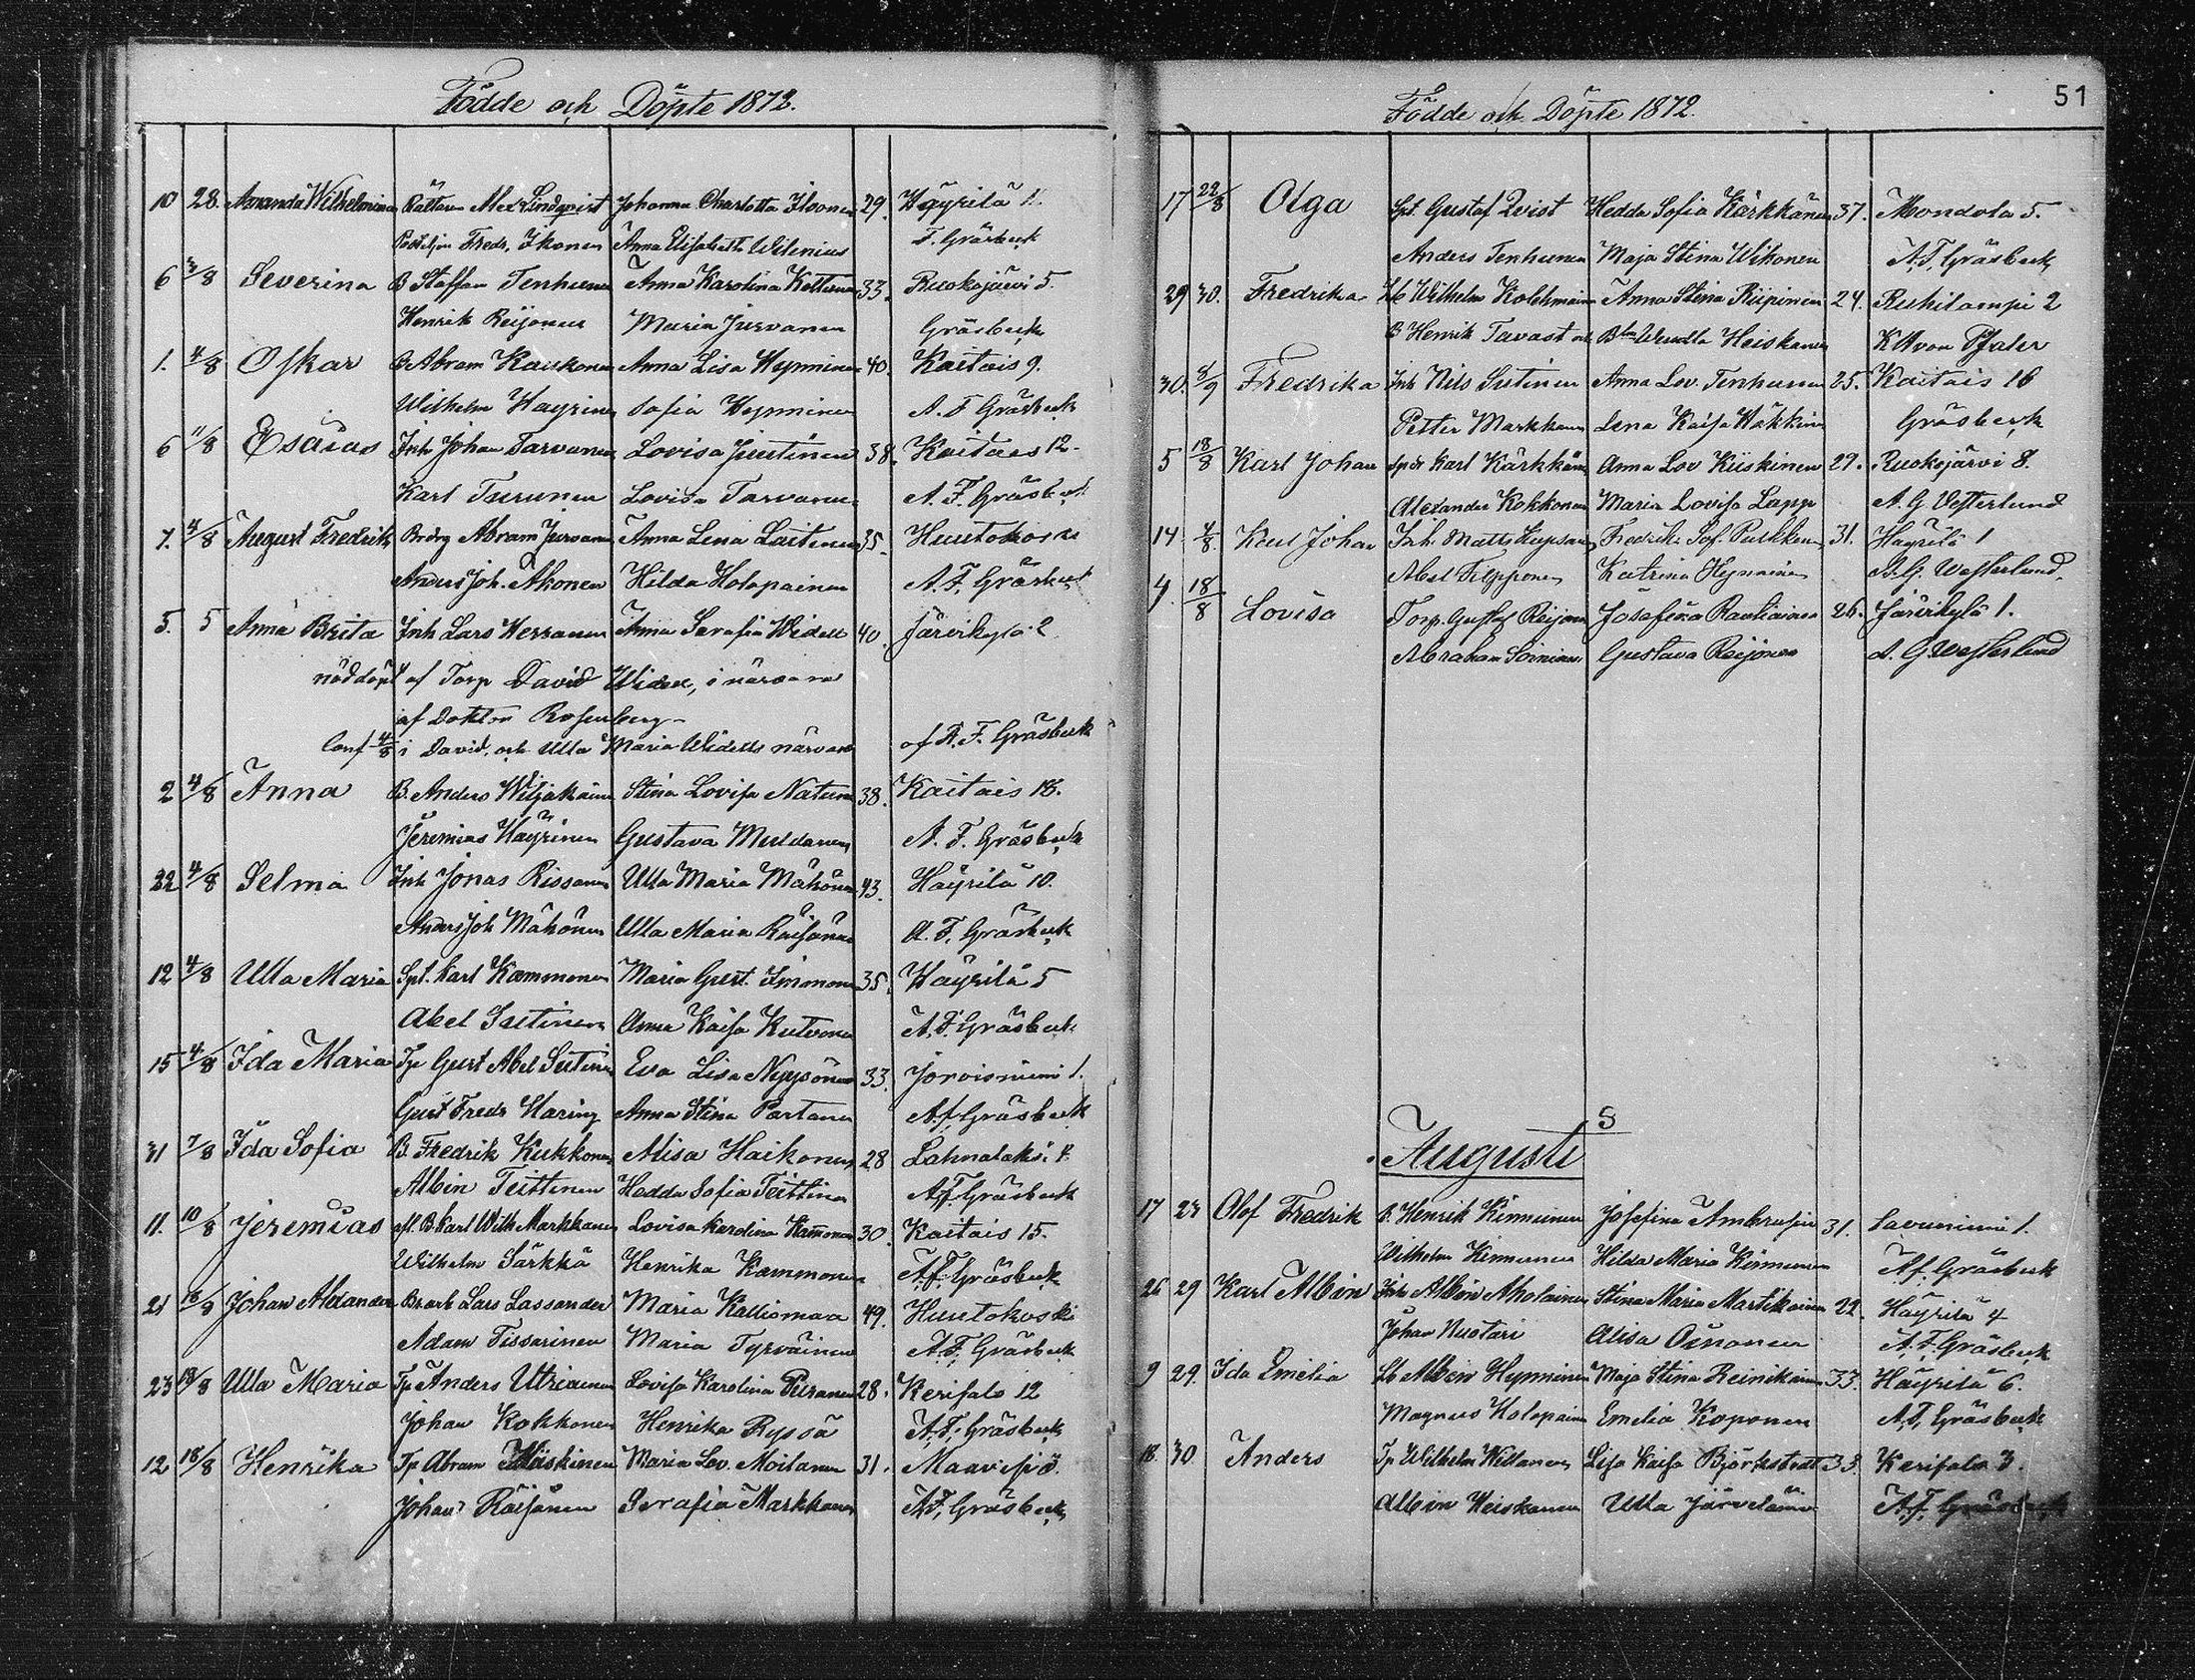 Födde och Döpte 1872.
10 28. Amanda Wilhelmina Rättaren Alex Lindqvist Johanna Charlotta Ikonen 29. Häyrilä 1.
Postiljon Fredr. Ikonen Anna Elisabeth Wilenius F. Gräsbeck
6 3/8 Severina B Staffan Tenhunen Anna Karolina Kettunen 33. Ruokojärvi 5.
Henrik Reijonen Maria Jurvanen Gräsbeck
1. 4/8 Oskar B Abram Kauskonen Anna Lisa Hynninen 40. Kaitais 9.
Wilhelm Hayrinen Sofia Hynninen A. F Gräsbeck
6 11/8 Esaias Inh Johan Tarvanen Lovisa Juutinen 38. Kaitais 12.
Karl Turunen Lovisa Tarvanen A. F. Gräsbeck
7. 4/8 August Fredrik Brdrg Abram Jurvanen Anna Lena Laitinen 35. Huutokoski
Anders Joh. Akonen Hilda Holopainen A. F. Gräsbeck
5. 5 Anna Brita Inh Lars Herranen Anna Serafia Widell 40. Järvikylä 2
nöddöpt af Torp David Widell, i närvaro
af Doktor Rosenberg
Conf 4/8 i David, och Ulla Maria Widells närvaro af A. F. Gräsbeck
2 4/8 Anna B. Anders Wiljakainen Stina Lovisa Natunen 38. Kaitais 18.
Jeremias Häyrinen Gustava Muldanen A. F. Gräsbeck
22 4/8 Selma Inh Jonas Rissanen Ulla Maria Mähönen 43. Häyrilä 10.
Anders Joh Mähönen Ulla Maria Räisänen A. F. Gräsbeck
12 4/8 Ulla Maria Spt. Karl Kammonen Maria Gust. Immonen 35. Häyrilä 5
Abel Sutinen Anna Kaisa Kutvonen A. F. Gräsbeck
15 4/8 Ida Maria Tp Gust Abel Sutinen Eva Lisa Nyyssönen 33. Jorvisniemi 1.
Gust Fredr Haring Anna Stina Partanen A. f. Gräsbeck
31 7/8 Ida Sofia B. Fredrik Kukkonen Alisa Haikonen 28 Lahnalaksi 4.
Albin Teittinen Hedda Sofia Teittinen A. f. Gräsbeck
11. 10/8 Jeremias B Karl Wilh Markkanen Lovisa Karolina Kammonen 30. Kaitais 15.
Wilhelm Särkkä Henrika Kammonen A. f. Gräsbeck
21 18/8 Johan Alexander Br arb Lars Lassander Maria Kalliomaa 49. Huutokoski
Adam Tissarinen Maria Tyrväinen A. F. Gräsbeck
23 18/8 Ulla Maria Tp Anders Utriainen Lovisa Karolina Piiranen 28. Kerisalo 12
Johan Kokkonen Henrika Ryssä A. F. Gräsbeck
12 18/8 Henrika Tp Abram Kiiskinen Maria Lov. Moilanen 31. Maavesi 3.
Johan Räisänen Serafia Markkanen A. F. Gräsbeck
51
Födde och Döpte 1872.
17 22/8 Olga Spt. Gustaf Qvist Hedda Sofia Kärkkäinen 37. Mondola 5.
Anders Tenhunen Maja Stina Wihonen A. F. Gräsbeck
29 30. Fredrika Lb Wilhelm Kolehmainen Anna Stina Riipinen 24. Ruhilampi 2
B Henrik Tavast och Bdn Wendla Heiskanen K H von Pfaler
30. 8/9 Fredrika Inh Nils Sutinen Anna Lov. Tenhunen 25. Kaitais 16
Petter Markkanen Lena Kaisa Häkkinen Gräsbeck
5 18/8 Karl Johan Spdr Karl Kärkkäinen Anna Lov Kiiskinen 29. Ruokojärvi 8.
Alexander Kokkonen Maria Lovisa Lapp A. G. Vesterlund
14. 4/8. Karl Johan Inh. Matts Hupsanen Fredrika Sof. Pulkkinen 31. Häyrilä 1
Abel Filpponen Katrina Hynninen A. G. Westerlund.
4. 18/8 Lovisa Torp. Gustaf Reijonen Josefina Rautiainen 26. Järvikylä 1.
Abraham Soininen Gustava Reijonen A. G Westerlund
Augusti 8
17 23 Olof Fredrik B. Henrik Kinnunen Josefina Ambrusin 31. Savuniemi 1.
Wilhelm Kinnunen Hilda Maria Kinnunen A. f. Gräsbeck
26 29 Karl Albin Inh Albin Aholainen Stina Maria Martikainen 22. Häyrilä 4
Johan Nuotari Alisa Oinonen A. F. Gräsbeck
9 29. Ida Emelia Lb Albin Hynninen Maja Stina Reinikainen 33. Häyrilä 6.
Magnus Holopainen Emelia Koponen A. F. Gräsbeck
18. 30 Anders Tp Wilhelm Willanen Lisa Kaisa Björkstedt 33. Kerisalo 3.
Albin Heiskanen Ulla Järveläinen A. F. Gräsbeck